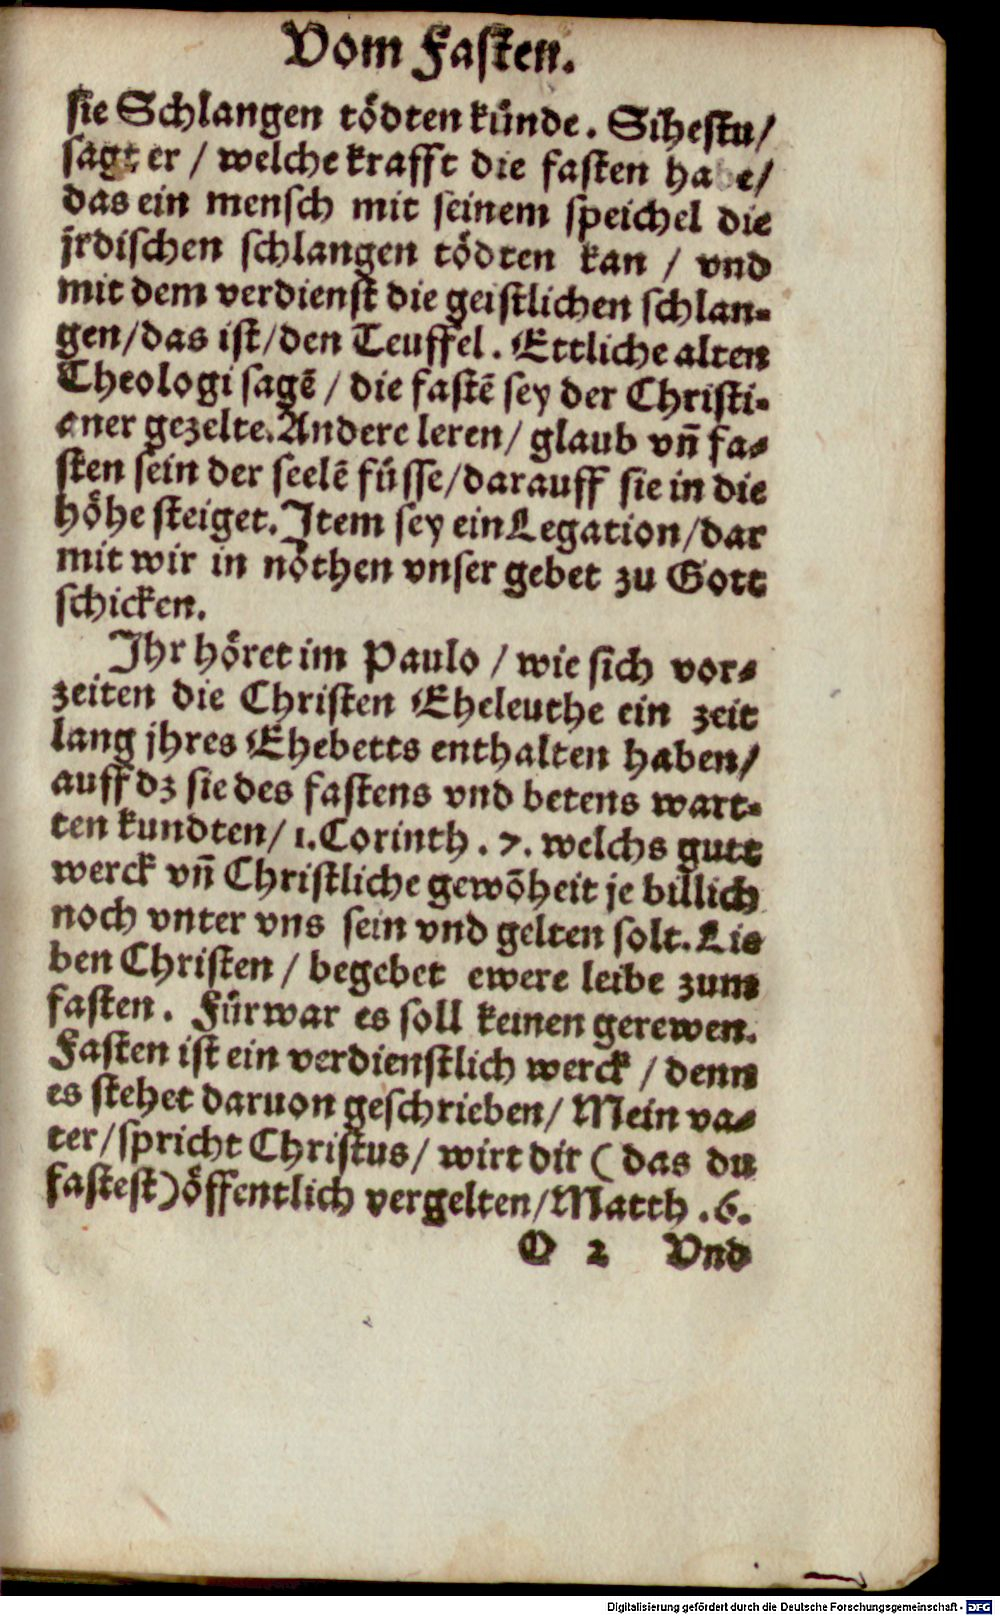 Vom Fasten.
sie Schlangen tödten künde. Sihestu/
sagt er / welche krafft die fasten habe/
das ein mensch mit seinem speichel die
jrdischen schlangen tödten kan / vnd
mit dem verdienst die geistlichen schlan-
gen/das ist/den Teuffel. Ettliche alten
Theologi sagẽ / die fastẽ sey der Christi-
aner gezelte. Andere leren/ glaub vñ fa-
sten sein der seelẽ füsse/darauff sie in die
höhe steiget. Item sey ein Legation/dar
mit wir in nöthen vnser gebet zu Gott
schicken.
Ihr höret im Paulo / wie sich vor-
zeiten die Christen Eheleuthe ein zeit
lang jhres Ehebetts enthalten haben/
auff dz sie des fastens vnd betens wart-
ten kundten/ 1. Corinth. 7. welchs gutt
werck vñ Christliche gewõheit je billich
noch vnter vns sein vnd gelten solt. Lie
ben Christen / begebet ewere leibe zum
fasten. Fürwar es soll keinen gerewen.
Fasten ist ein verdienstlich werck / denn
es stehet daruon geschrieben/ Mein va-
ter/spricht Christus/ wirt dir (das du
fastest) öffentlich vergelten/Matth. 6.
O 2 Vnd
Digitalisierung gefördert durch die Deutsche Forschungsgemeinschaft - DFG